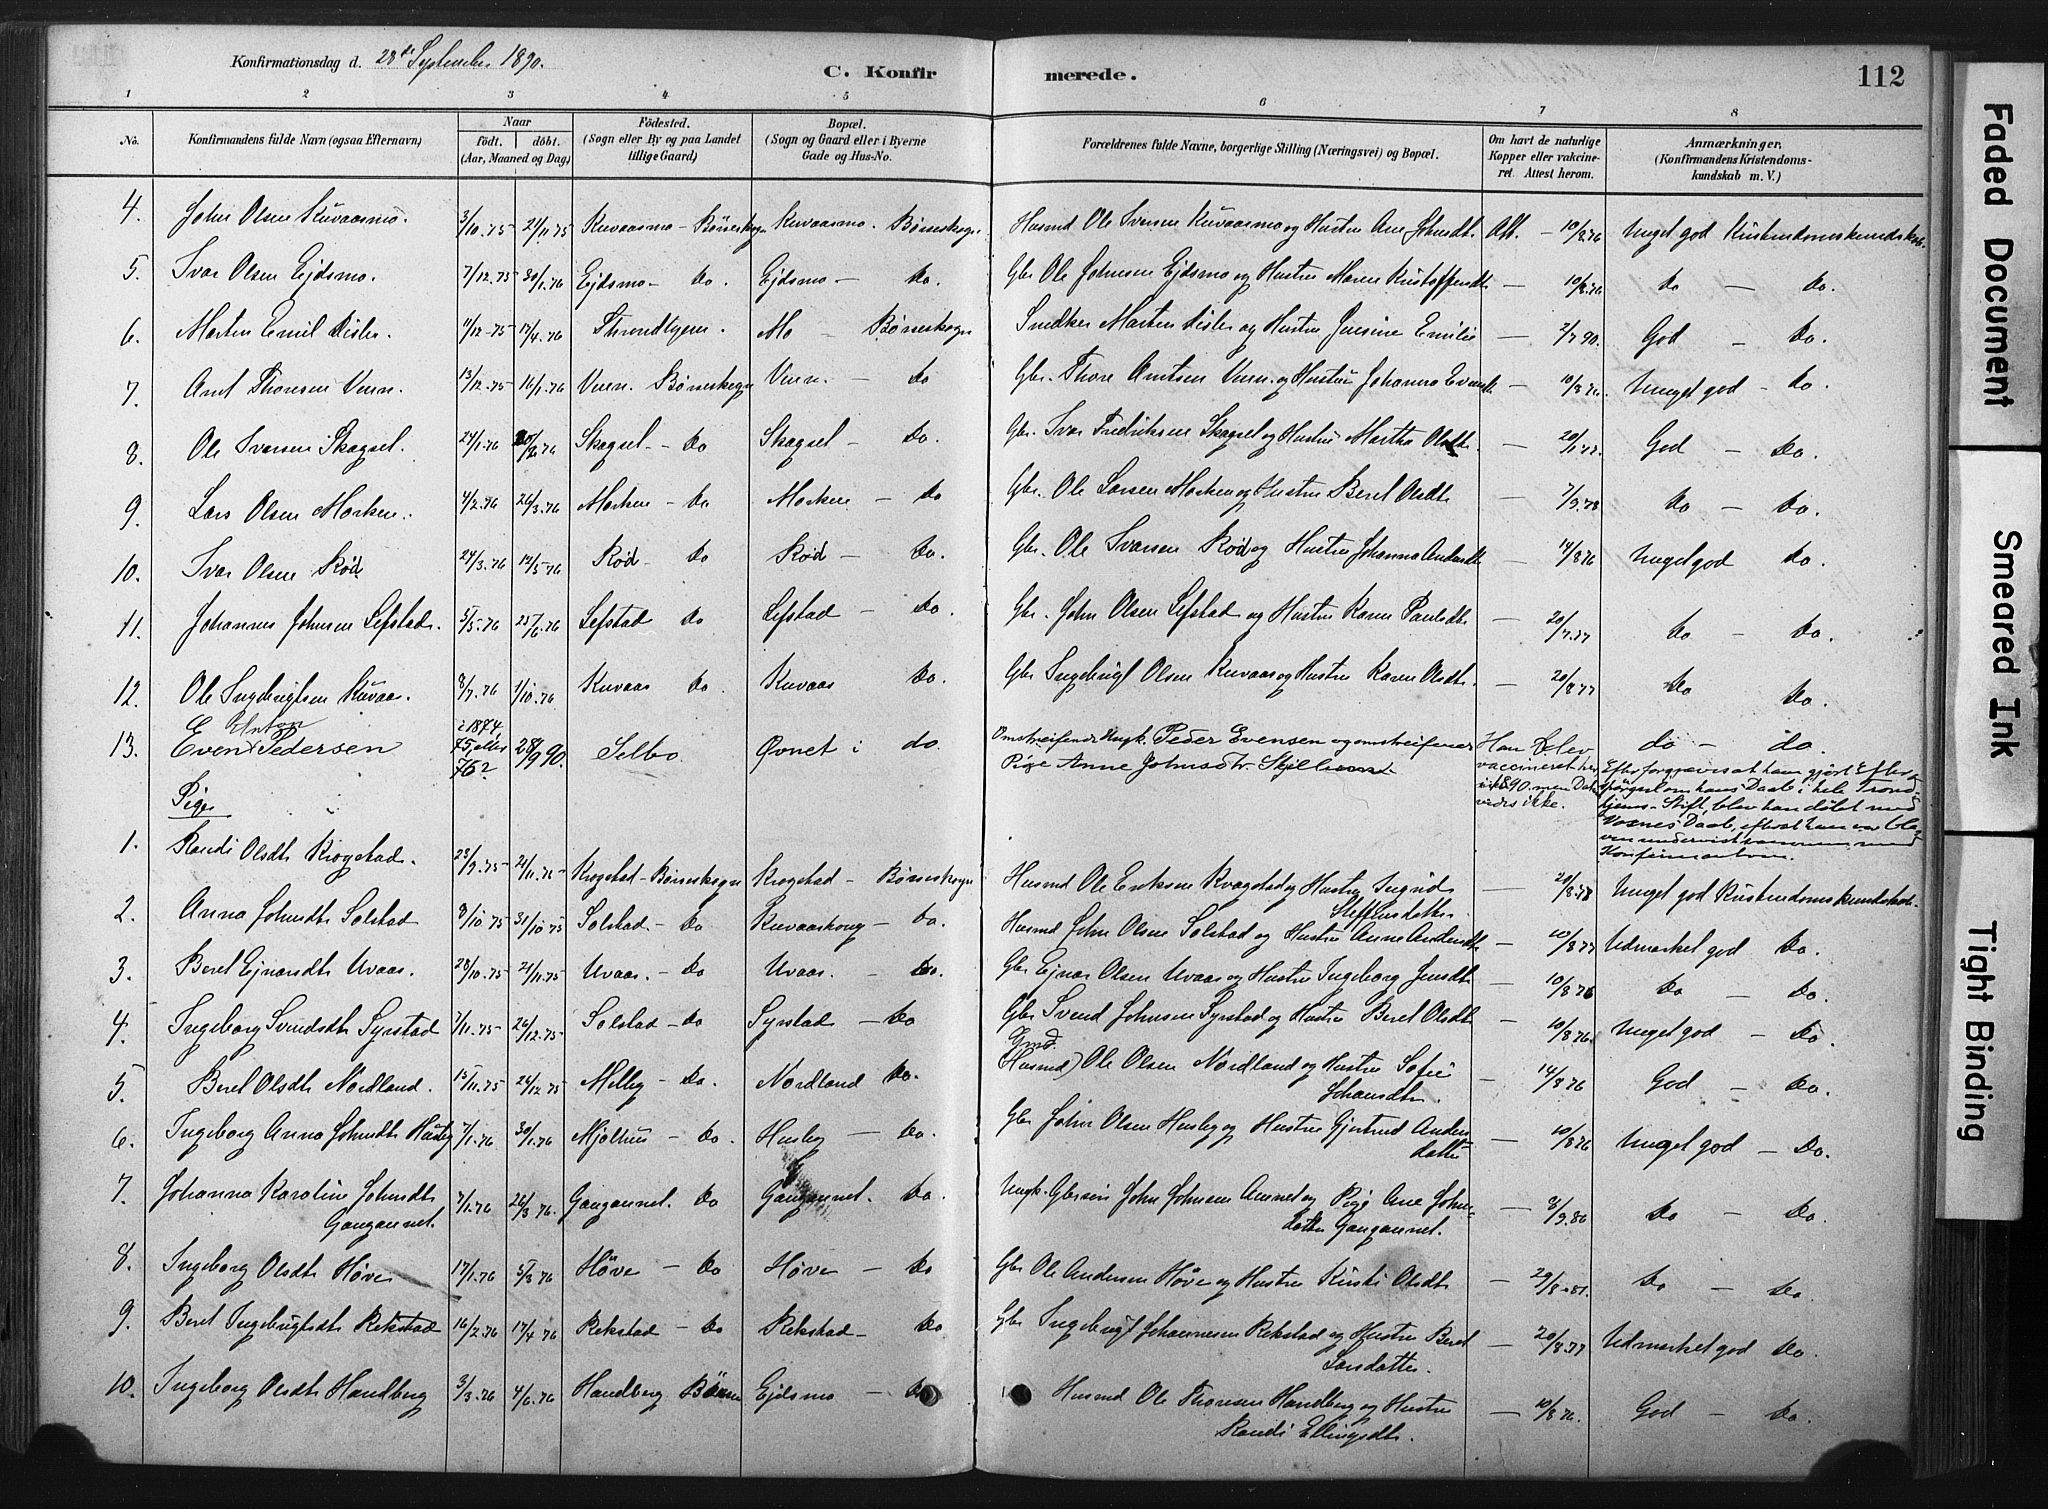 Konfirmationsdag d. 28de September 1890.
C. Konfirmerede.
112
1 2 3 4 5 6 7 8
No. Konfirmandens fulde Navn (ogsaa Efternavn) Naar født. døbt. (Aar, Maaned og Dag) Fødested. (Sogn eller By og paa Landet tillige Gaard) Bopæl. (Sogn og Gaard eller i Byerne Gade og Hus-No. Forældrenes fulde Navne, borgerlige Stilling (Næringsvei) og Bopæl. Om havt de naturlige Kopper eller vakcineret. Attest herom. Anmærkninger. (Konfirmandens Kristendomskundskab m. V.)
4. John Olsen Kuvaasmo. 3/10.75 21/11.75 Kuvaasmo - Børseskogn Kuvaasmo. Børseskogn Husmd Ole Ivarsen Kuvaasmo og Hustru Ane Johnsdt. Att. - 10/8.76 Meget god Kristendomskundskab.
5. Ivar Olsen Ejdsmo. 7/12.75 30/1.76 Ejdsmo - Do. Ejdsmo - Do. Gbr. Ole Johnsen Ejdsmo og Hustru Maren Kristoffersdt. - 10/8.76 Do - Do.
6. Morten Emil Disler. 4/12.75 17/4.76 Throndhjem. Mo - Børseskogn Snedker Morten Disler og Hustru Jensine Emilie - 2/7 90. God - Do.
7. Arnt Thoresen Veern. 13/12.75 16/1.76 Veern. Børseskogn Veern. - Do Gbr. Thore Arntsen Veern og Hustru Johanna Evensdt. - 10/8 76. Meget god - Do.
8. Ole Ivarsen Skogsel. 24/1.76 Skogsel - Do Skogsel - Do. Gbr. Ivar Fredriksen Skogsel og Hustru Martha Olsdt. - 20/1 77. God - Do.
9. Lars Olsen Morken. 4/2.76 26/3.76 Morken - Do Morken - Do Gbr. Ole Larsen Morken og Hustru Beret Olsdt. - 7/9.78 Do - Do.
10. Ivar Olsen Rød. 24/3.76 12/5.76 Rød - Do Rød - Do. Gbr. Ole Ivarsen Rød og Hustru Johanna Andersdt. - 14/8 76 Meget god Do.
11. Johannes Johnsen Lefstad. 5/5.76 25/6.76 Lefstad Do Lefstad - Do. Gbr. John Olsen Lefstad og Hustru Karen Paulsdt. - 20/7.77 Do - Do.
12. Ole Ingebrigtsen Kuvaas. 8/7.76 1/10.76 Kuvaas Do. Kuvaas Do. Gbr Ingebrigt Olsen Kuvaas og Hustru Karen Olsdt. - 20/8 77 Do Do.
13. Even Anton Pedersen i 1874, 75, eller 76? 28/9 90. Selbo Øvnet i do. Omstreifende Ungk. Peder Evensen og omstreifende Pige Anne Johnsdtr. Han blev vaccineret men Dato vides ikke. do - do. Efter forgjæves at have gjort Efterspørgsel om hans Daab i hele Trondhjems-Stift, blev han døbt med Voxnes Daab, efterat han var bleven undervist sammen med Konfirmanterne.
Piger
1. Randi Olsdt Krogstad. 23/9.75 21/11.75 Krogstad - Børseskogn Krogstad - Børseskogn Husmd Ole Eriksen Krogstad og Hustru Ingrid Steffensdatter. - 20/8.78 Meget god Kristendomskundskab.
2. Anna Johnsdt Solstad 8/10.75 31/10.75 Solstad - Do Kuvaashaug - Do. Husmd John Olsen Solstad og Hustru Anne Andersdt - 10/8.77 Udmærket god Do.
3. Beret Ejnarsdt Uvaas. 28/10.75 21/11.75 Uvaas. - Do Uvaas. - Do. Gbr Ejnar Olsen Uvaas og Hustru Ingeborg Jensdt - 10/8 76 Do - Do.
4. Ingeborg Svendsdt Syrstad 7/11.75 26/12.75 Solstad - Do Syrstad - Do Gbr Svend Johnsen Syrstad og Hustru Beret Olsdt - 10/8 76. Meget god - Do.
5. Beret Olsdt Nordland. 15/11.75 26/12 75 Melby - Do. Nordland Do. Gmd. (Husmd) Ole Olsen Nordland og Hustru Sofie Johansdtr. - 14/8 76 God - Do.
6. Ingeborg Anna Johnsdt Husby 7/1.76 30/1.76 Mjølhus - Do. Husby - Do. Gbr John Olsen Husby og Hustru Gjertrud Andersdatter - 10/8 76 Meget god - Do.
7. Johanna Karoline Johnsdt Gangaunet. 7/1.76 26/3 76. Gangaunet. Do Gangaunet. Do. Ungk. Gbrsøn John Johnsen Aunet og Pige Ane Johnsdatter Gangaunet. - 8/9.86 Do - Do.
8. Ingeborg Olsdt Høve 17/1.76 5/3 76 Høve - Do Høve - Do Gbr Ole Andersen Høve og Hustru Kirsti Olsdt - 29/8.81. Do - Do.
9. Beret Ingebrigtsdt Rekstad 16/2.76 17/4 76 Rekstad - Do Rekstad - Do Gbr Ingebrigt Johannesen Rekstad og Hustru Beret Larsdatter. - 20/8.77 Udmærket god Do.
10. Ingeborg Olsdt Handberg 3/3.76 4/6.76 Handberg Børsen Ejdsmo - Do Husmd Ole Thoresen Handberg og Hustru Randi Ellingsdtr. - 10/8 76. God - Do.
Faded Document
Smeared Ink
Tight Binding